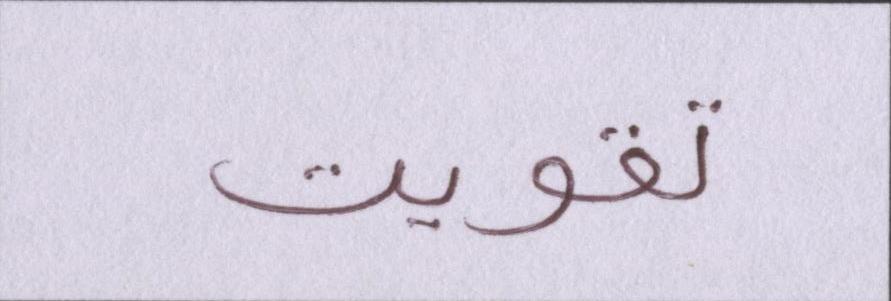 تقویت